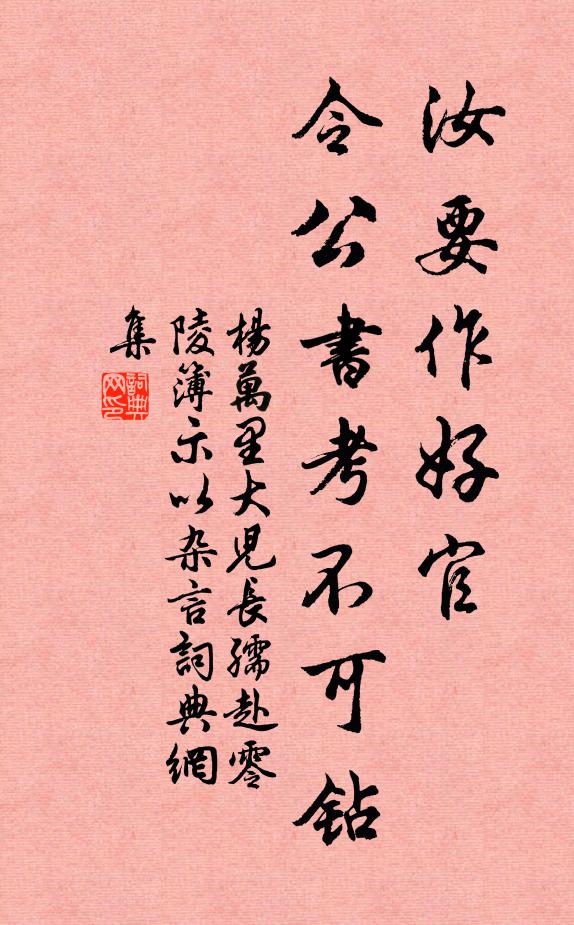 汝要作好官
令公書考不可鉆
楊萬里大児長孺赴零
陵簿示以杂言詞典網
集
詞典
网印